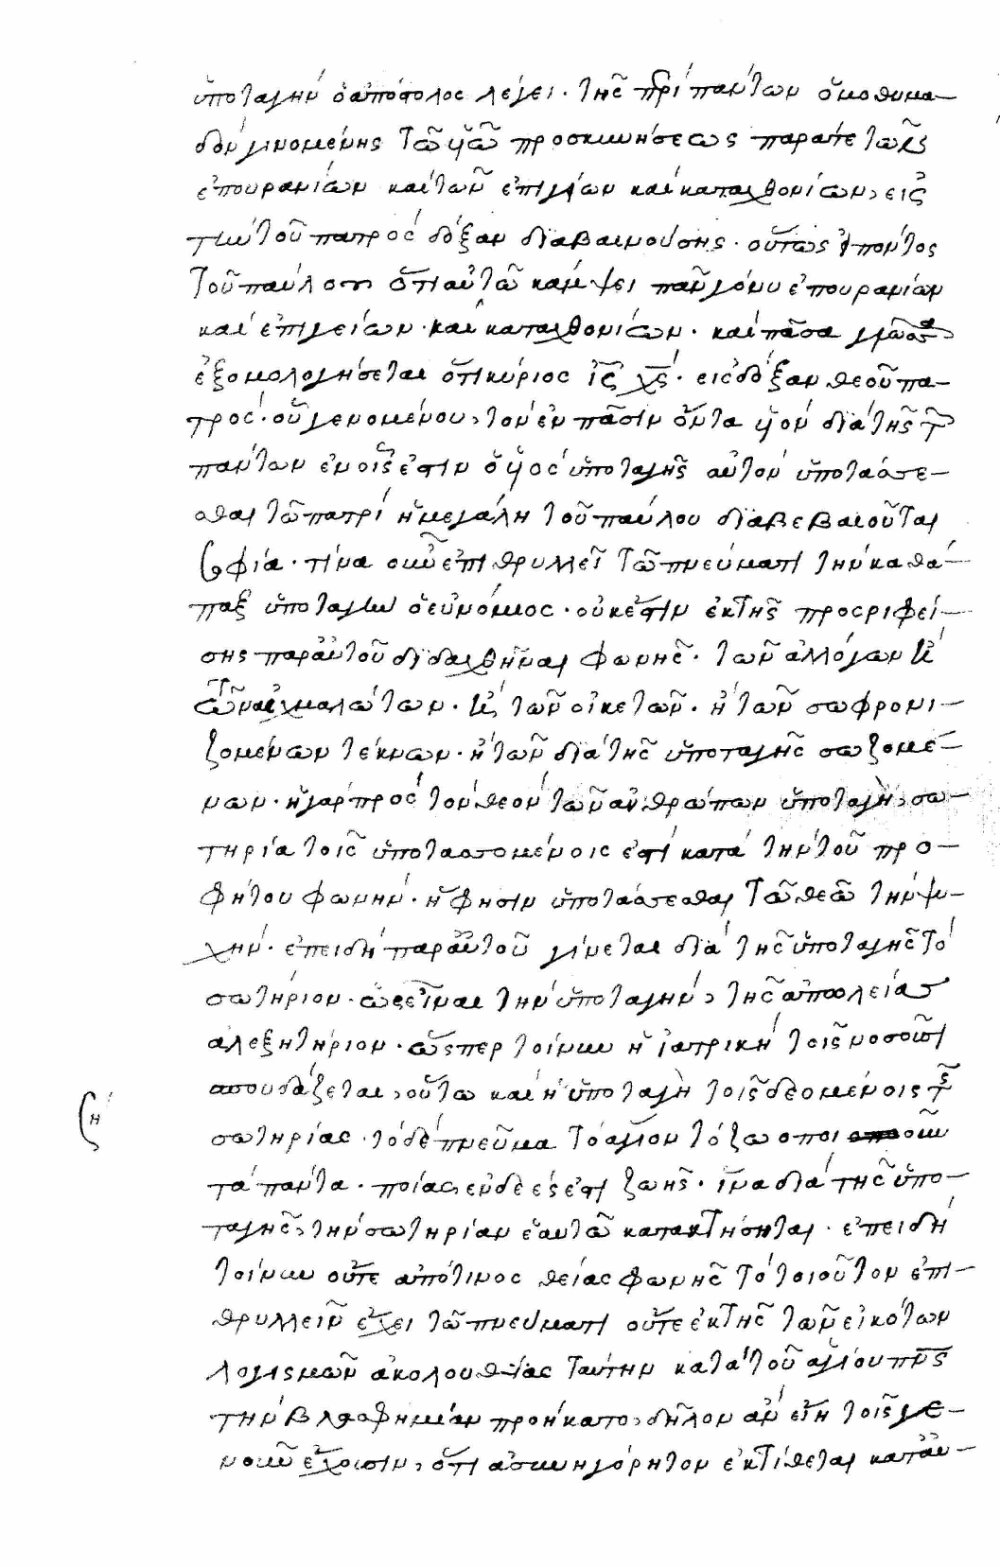 ὑποταγὴν ὁ ἀπόστολος λέγει· τῆς περὶ πάντων ὁμοθυμα-
δὸν γινομένης τῶ υἱῶ προσκυνήσεως παρά τε τῶν
ἐπουρανίων καὶ τῶν ἐπιγείων καὶ καταχθονίων, εἰς
τὴν τοῦ πατρὸς δόξαν διαβαινούσης· οὕτως εἰπόντος
τοῦ παύλου ὅτι αὐτῶ κάμψει πᾶν γόνυ ἐπουρανίων
καὶ ἐπιγείων· καὶ καταχθονίων· καὶ πᾶσα γλῶσσα
ἐξομολογήσεται ὅτι κύριος ις χς· εἰς δόξαν θεοῦ πα-
τρός· οὗ γενομένου, τὸν ἐν πᾶσιν ὄντα υἱὸν διὰ τῆς τ
πάντων ἐν οἷς ἐστιν ὁ υἱὸς ὑποταγῆς αὐτὸν ὑποτάσσε-
σθαι τῶ πατρὶ ἡ μεγάλη τοῦ παύλου διαβεβαιοῦται
σοφία· τίνα οὖν ἐπιθρυλλεῖ τῶ πνεύματι τὴν καθά-
παξ ὑποταγὴν ὁ εὐνόμιος· οὐκ ἔστιν ἐκ τῆς προσριφεί-
σης παρ αὐτοῦ διδαχθῆναι φωνῆς· τῶν ἀλλόγων κὲ
τῶν αἰχμαλώτων· κὲ τῶν οἰκετῶν· ἢ τῶν σωφρονι-
ζομένων τέκνων· ἢ τῶν διὰ τῆς ὑποταγῆς σωζομέ-
νων· ἡ γὰρ πρὸς τὸν θεὸν τῶν ἀνθρώπων ὑποταγὴ, σω-
τηρία τοῖς ὑποτασσομένοις ἐστὶ κατὰ τὴν τοῦ προ-
φήτου φωνὴν· ἥ φησιν ὑποτάσσεσθαι τῶ θεῶ τὴν ψυ-
χήν· ἐπειδὴ παρ αὐτοῦ γίνεται διὰ τῆς ὑποταγῆς τὸ
σωτήριον· ὡς εἶναι τὴν ὑποταγὴν, τῆς ἀπωλείας
ἀλεξητήριον· ὥσπερ τοίνυν ἡ ἰατρικὴ τοῖς νοσοῦσι
σπουδάζεται, οὕτω καὶ ἡ ὑποταγὴ τοῖς δεομένοις τῆς
η
σωτηρίας· τὸ δὲ πνεῦμα τὸ ἅγιον τὸ ζωοποιοῦν
τὰ πάντα· ποίας ἐνδεές ἐστι ζωῆς· ἵνα διὰ τῆς ὑπο-
ταγῆς, τὴν σωτηρίαν ἑαυτῶ κατακτήσηται· ἐπειδὴ
τοίνυν οὔτε ἀπό τινος θείας φωνῆς τὸ τοιοῦτον ἐπι-
θρυλλεῖν ἔχει τῶ πνεύματι οὔτε ἐκ τῆς τῶν εἰκότων
λογισμῶν ἀκολουθίας ταύτην κατὰ τοῦ ἁγίου πνς
τὴν βλασφημίαν προήκατο, δῆλον ἂν εἴη τοῖς γε
νοῦν ἔχουσιν, ὅτι ἀσυνηγόρητον ἐκτίθεται κατ αὐ-